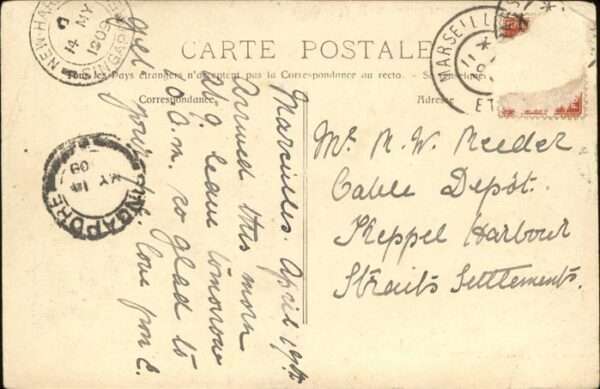 CARTE POSTALE
Tous les Pays étrangers n'acceptent pas la Correspondance au recto.
Correspondance
Adresse
Marseilles. April 19th
Arrived this morn
leave tomorrow
a.m. so glad to
get your
love from E.
Mr. R. W. Reeder
Cable Depôt.
Keppel Harbour
Straits Settlements.
NEW HAR
14 MY
1909
SINGAPORE
MARSEILLE
ET
SINGAPORE
14
MY
09